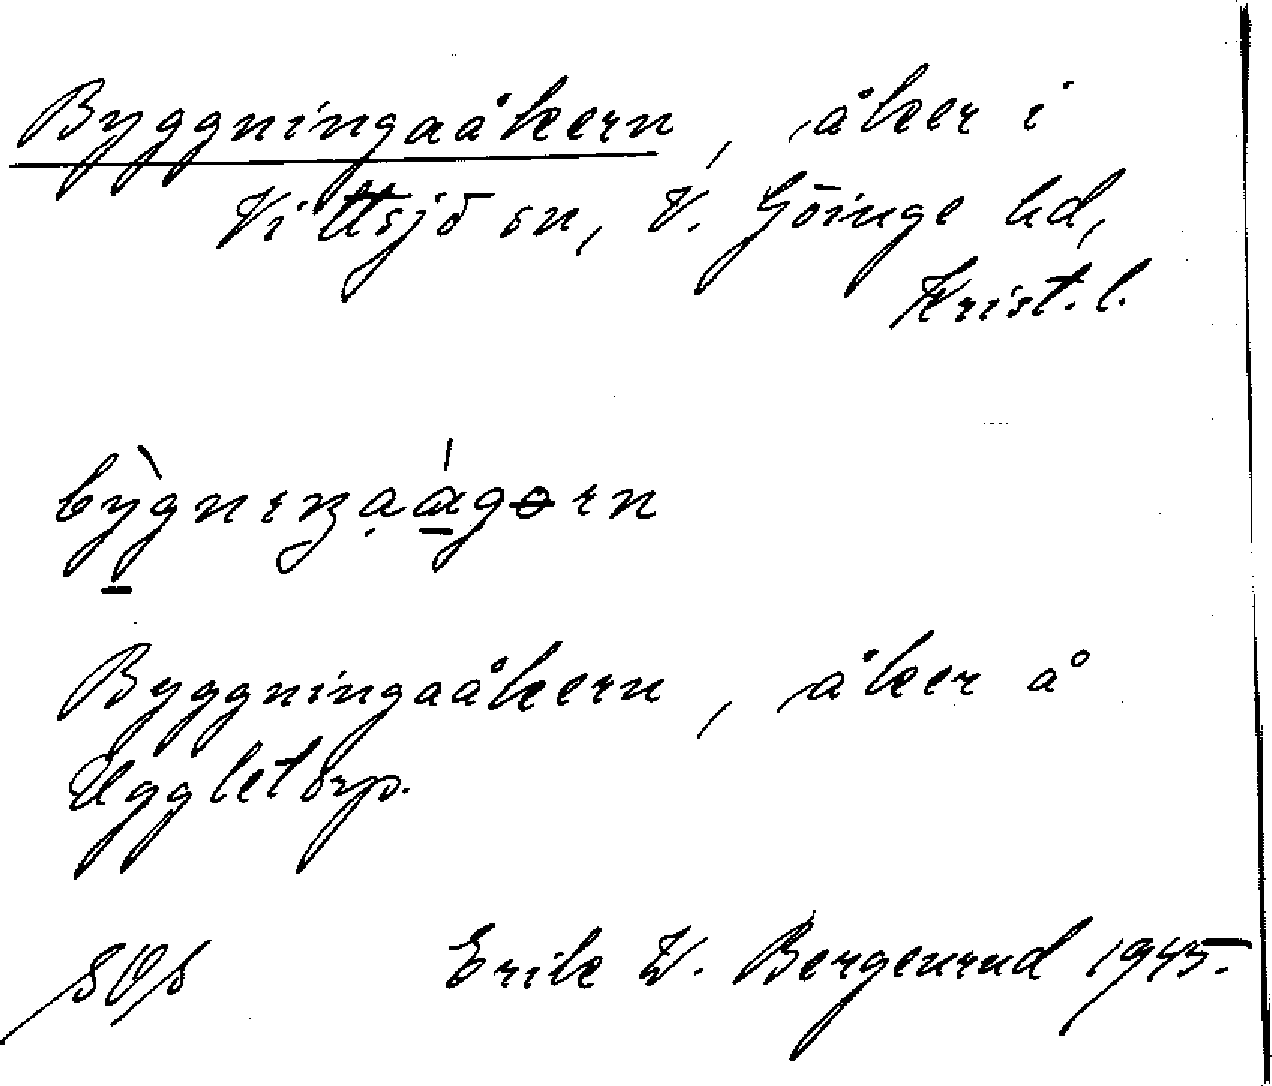 Byggningaåkern, åker i
Vittsjö sn, V. Göinge hd,
Krist. l.
Byggningaåkern, åker å
Uggletorp.
Erik W. Bergenrud 1945.